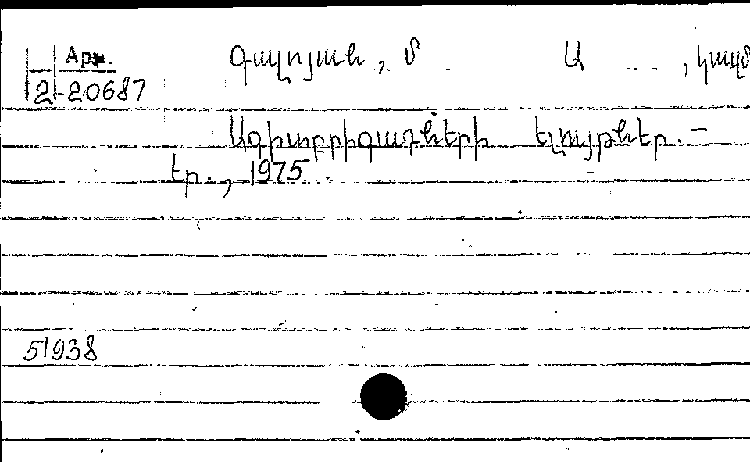 Арм.
2-20687
Գալոյան, Մ. Ա ..., կազմ
Ագիտբրիգադների ելույթներ. –
Եր., 1975.
51938